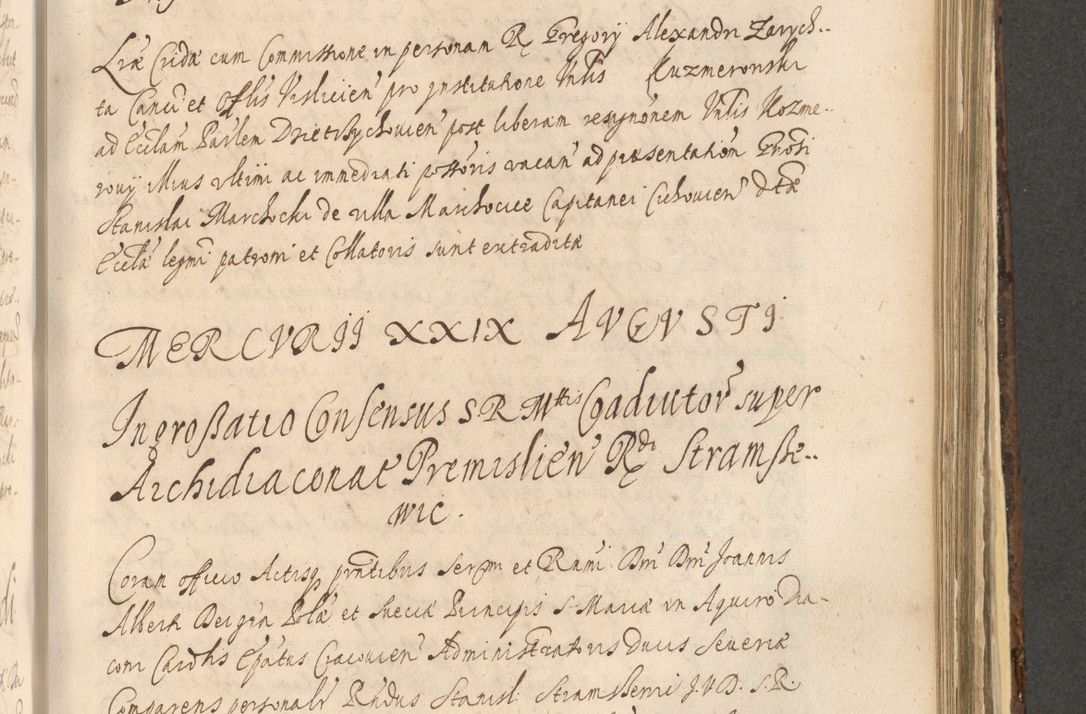 Lrẽ Cridæ cum Commissione in personan R. Gregorij Alexandri Zarych..
ta Canci et Offlis Vislicien̄ pro institutione Vnlis Kuzmeronski
ad Ecclām Parlem Dzietrzychouien̄ post liberam resignōnem Vnlis Kozme-
rouij illius vltimi ac immediati possōris vacan̄ ad præsentatiōn Gnōsi
Stanislai Marchocki de villa Marchocice Capitanei Cichouien̄ dctæ
Ecclæ legmi patroni et Collatoris sunt extraditæ
MERCVRII XXIX AVGVSTI
Ingroßatio Consensus S.R.Mttis Coadiutor̄ super
Archidiaconat̄ Premislien̄ Rdi Stramße..
wic.
Coram officio Actisq̨ pr̄ntibus Serm̄i et Rnmi Dnī Dnī Joannis
Alberti Dei grā Polæ et Sueciæ Principis S. Mariæ in Aquiro Dia-
coni Cardlis Epatus Cracouien̄ Administratoris Ducis Seueriæ
Comparens personalr̄ Rndus Stanisl. Stramßewi J.V.D. S.R.